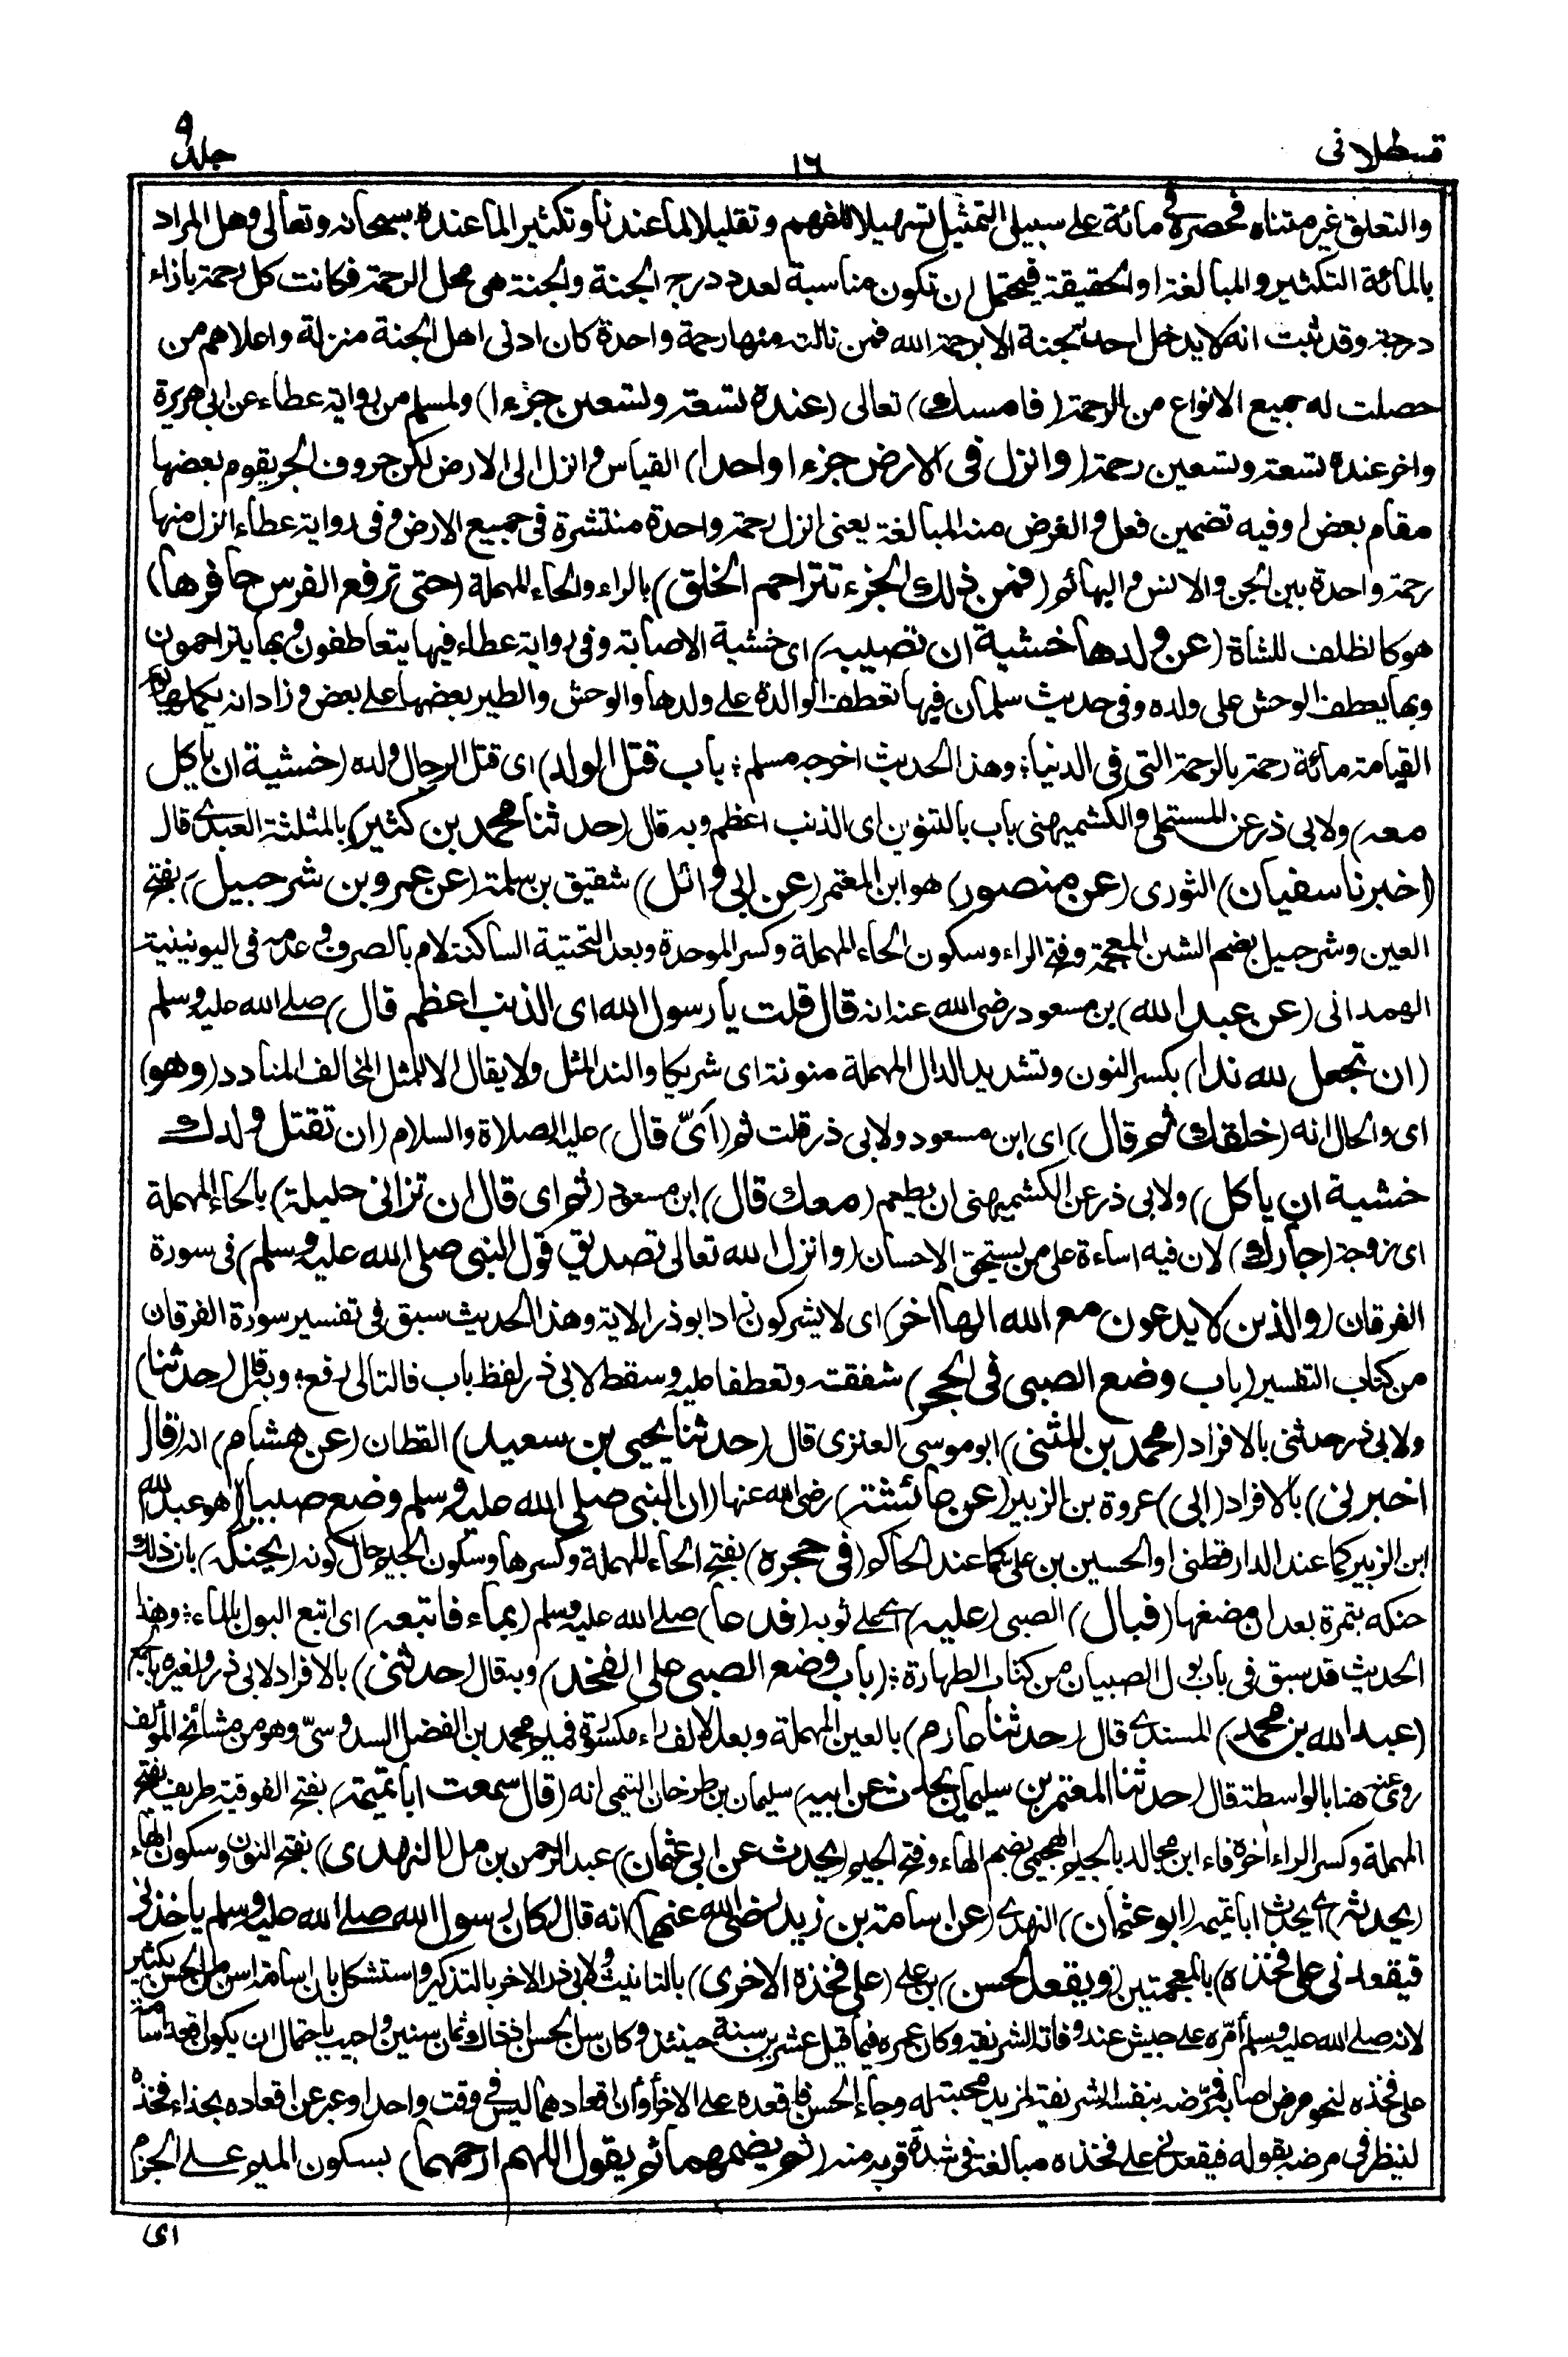 قسطلانی
١٦
جلد ٩
والتعلق غير متناه فحصره فى مائة على سبيل التمثيل تسهيلا للفهم وتقليلا لما عندنا وتكثيرا لما عنده سبحانه وتعالى وهل المراد
بالمائة التكثير والمبالغة او الحقيقة فيحتمل ان تكون مناسبة لعدد درج الجنة والجنة هى محل الرحمة فكانت كل رحمة بازاء
درجة وقد ثبت انه لا يدخل احد الجنة الا برحمة الله فمن نالته منها رحمة واحدة كان ادنى اهل الجنة منزلة واعلاهم من
حصلت له جميع الانواع من الرحمة (فامسك) تعالى (عنده تسعة وتسعين جزءا) ولمسلم من رواية عطاء عن ابى هريرة
واخر عنده تسعة وتسعين رحمة (وانزل فى الارض جزءا واحدا) القياس وانزل الى الارض لكن حروف الجر يقوم بعضها
مقام بعض او فيه تضمين فعل والغرض منه المبالغة يعنى انزل رحمة واحدة منتشرة فى جميع الارض وفى رواية عطاء انزل منها
رحمة واحدة بين الجن والانس والبهائم (فمن ذلك الجزء تتراحم الخلق) بالراء والحاء المهملة (حتى ترفع الفرس حافرها)
هو كالظلف للشاة (عن ولدها خشية ان تصيبه) اى خشية الاصابة وفى رواية عطاء فيها يتعاطفون وبها يتراحمون
وبها يعطف الوحش على ولده وفى حديث سلمان فيها تعطف الوالدة على ولدها والوحش والطير بعضها على بعض وزاد انه يكملها يوم
القيامة مائة رحمة بالرحمة التى فى الدنيا؛ وهذا الحديث اخرجه مسلم؛ باب قتل الولد) اى قتل الرجال ولده (خشية ان ياكل
معه) ولابى ذر عن المستملى والكشميهنى باب بالتنوين اى الذنب اعظم وبه قال (حدثنا محمد بن كثير) بالمثلثة العبدى قال
(اخبرنا سفيان) الثورى (عن منصور) هو ابن المعتمر (عن ابى وائل) شقيق بن سلمة (عن عمرو بن شرحبيل) بفتح
العين وشرحبيل بضم الشين المعجمة وفتح الراء وسكون الحاء المهملة وكسر الموحدة وبعد التحتية الساكنة لام بالصرف وعدمه فى اليونينية
الهمدانى (عن عبد الله) بن مسعود رضى الله عنه انه قال قلت يا رسول الله اى الذنب اعظم قال) صلى الله عليه وسلم
(ان تجعل لله ندا) بكسر النون وتشديد الدال المهملة منونة اى شريكا والند المثل ولا يقال الا للمثل المخالف المنادد (وهو)
اى والحال انه (خلقك ثم قال) اى ابن مسعود ولابى ذر قلت ثم (اَىّ قال) عليه الصلاة والسلام (ان تقتل ولدك
خشية ان ياكل) ولابى ذر عن الكشميهنى ان يطعم (معك قال) ابن مسعود (ثم اى قال ان تزانى حليلة) بالحاء المهملة
اى زوجة (جارك) لان فيه اساءة على من يستحق الاحسان (وانزل الله تعالى تصديق قول النبى صلى الله عليه وسلم) فى سورة
الفرقان (والذين لا يدعون مع الله الها اخر) اى لا يشركون زاد ابو ذر الاية وهذا الحديث سبق فى تفسير سورة الفرقان
من كتاب التفسير (باب وضع الصبى فى الحجر) شفقة وتعطفا عليه وسقط لابى ذر لفظ باب فالتالى رفع؛ وبه قال (حدثنا)
ولابى ذر حدثنى بالافراد (محمد بن المثنى) ابو موسى العنزى قال (حدثنا يحيى بن سعيد) القطان (عن هشام) انه (قال
اخبرنى) بالافراد (ابى) عروة بن الزبير (عن عائشة) رضى الله عنها (ان النبى صلى الله عليه وسلم وضع صبيا) هو عبد الله
ابن الزبير كما عند الدارقطنى او الحسين بن على كما عند الحاكم (فى حجره) بفتح الحاء المهملة وكسرها وسكون الجيم حال كونه (يحنكه) بان ذلك
حنكه بتمرة بعد ان مضغها (فبال) الصبى (عليه) اى على ثوبه (فدعا) صلى الله عليه وسلم (بماء فاتبعه) اى اتبع البول بالماء؛ وهذا
الحديث قد سبق فى باب بول الصبيان من كتاب الطهارة؛ (باب وضع الصبى على الفخذ) وبه قال (حدثنى) بالافراد لابى ذر ولغيره بالجمع
(عبد الله بن محمد) المسندى قال (حدثنا عارم) بالعين المهملة وبعد الالف راء مكسورة فميم محمد بن الفضل السدوسىّ وهو من مشائخ المؤلف
روى عنه هنا بالواسطة قال (حدثنا المعتمر بن سليمان يحدث عن ابيه) سليمان بن طرخان التيمى انه (قال سمعت ابا تميمة) بفتح الفوقية طريف بفتح
المهملة وكسر الراء اخره فاء ابن مجالد بالجيم الهجيمى بضم الهاء وفتح الجيم (يحدث عن ابى عثمان) عبد الرحمن بن مل (النهدى) بفتح النون وسكون الهاء
(يحدثه) اى يحدث ابا تميمة (ابو عثمان) النهدى (عن اسامة بن زيد رضى الله عنهما) انه قال (كان رسول الله صلى الله عليه وسلم ياخذنى
فيقعدنى على فخذه) بالمعجمتين (ويقعد الحسن) بن على (على فخذه الاخرى) بالتانيث ولابى ذر الاخر بالتذكير واستشكل بان اسامة اسن من الحسن بكثير
لانه صلى الله عليه وسلم أمّره على جيش عند وفاته الشريفة وكان عمره فيما قيل عشرين سنة حينئذ وكان سن الحسن اذ ذاك ثمان سنين واجيب باحتمال ان يكون اقعد اسامة
على فخذه لنحو مرض اصابه فمرّضه بنفسه الشريفة لمزيد محبته له وجاء الحسن فاقعده على الاخرى أو أن اقعادهما ليس فى وقت واحد او عبر عن اقعاده بحذاء فخذه
لينظر فى مرضه بقوله فيقعدنى على فخذه مبالغة فى شدة قربه منه (ثم يضمهما ثم يقول اللهم ارحمهما) بسكون الميم على الجزم
اى